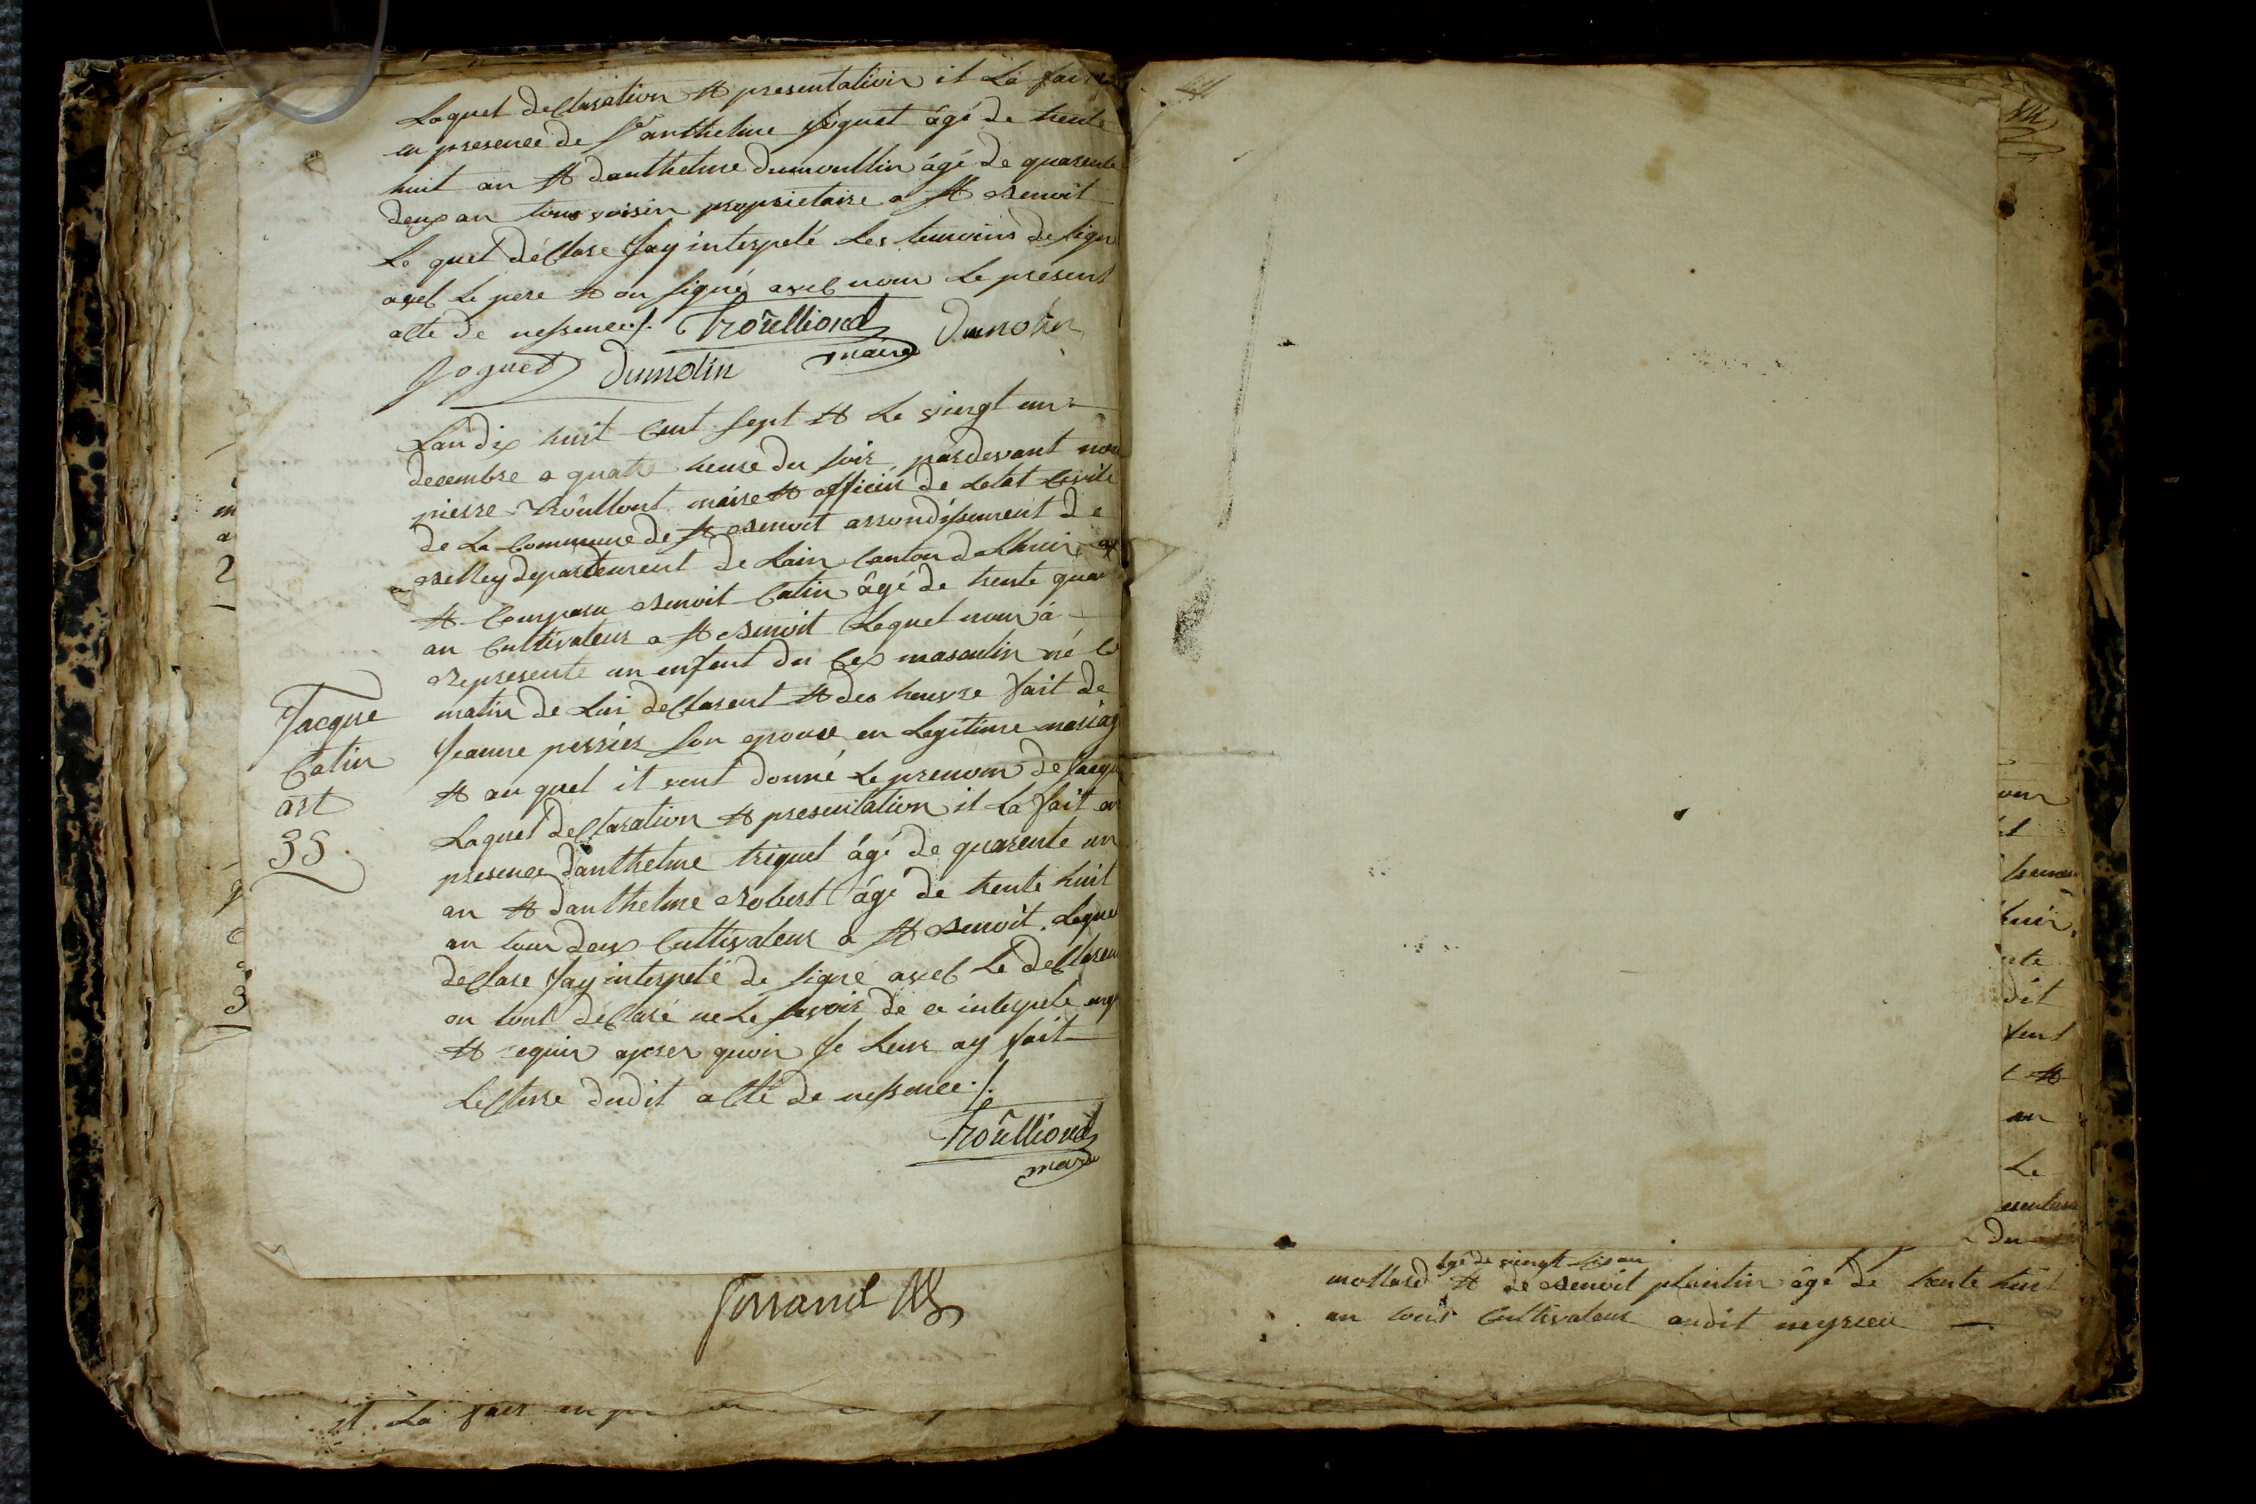 Laquel declaration et presentation il La fai
en presence de Sr anthelme joguet âgé de trente
huit an et danthelme dumoullin âgé de quarente
deux an tous voisin proprietaire a St Benoit
Le quel déclare Jay interpelé Les temoins de signe
avec Le pere et on signé avec nour Le présent
acte de nessence ./. Troûlliond Dumolin
Joguet Dumolin maire
Lan dix huit cent sept et Le vingt un
decembre a quatre heure du soir pardevant nou
pierre Troûllont maire et officiér de Letat Civile
de La Commune de St Benoit arrondissement de
Belley departement de Lain Canton de Lhuis
et Comparu Benoit Catin âgé de trente quat
an Cultivateur a St Benoit Lequel nour à
represente un enfent du Cex masculin né le
matin de Lui declarent et des heuvre fait de
Jeanne perrier son epouse en Legitime mariag
et au quel il veut donné Le prenom de Jacque
Laquel declaration et presentation il La fait en
presence danthelme triquet âgé de quarente un
an et danthelme Robert âgé de trente huit
an tour deux Cultivateur a St Benoit. Leque
declare Jay interpelé de signé avec Le declaren
on tout declaré ne Le savoir de ce interpelé
et requir apres quoin Je Leur ay fait
Lecture dudit acte de nessence ./.
Troûlliond
maire
Jacque
Catin
art
35
il La fait en
mollard et de Benoit plantin âgé de trente huit
âgé de vingt six an
an tout Cultivateur audit meyrieu